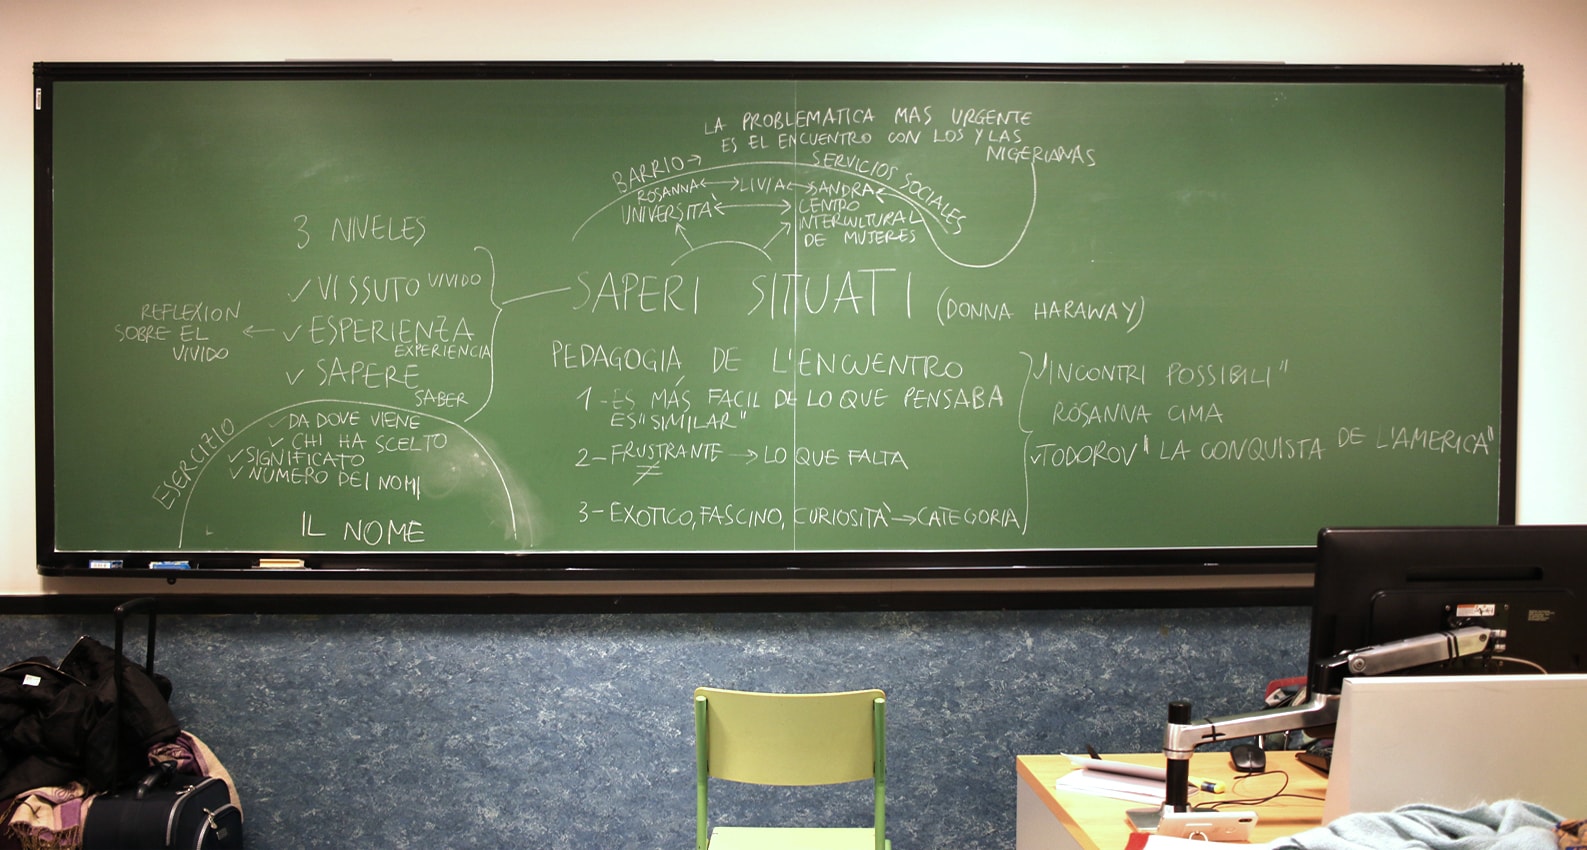 LA PROBLEMATICA MAS URGENTE
ES EL ENCUENTRO CON LOS Y LAS
NIGERIANAS
BARRIO → SERVICIOS SOCIALES
ROSANNA ↔ LIVIA ↔ SANDRA
UNIVERSITÀ ↔ CENTRO
INTERCULTURAL
DE MUJERES
3 NIVELES
✓ VISSUTO VIVIDO
✓ ESPERIENZA
EXPERIENCIA
✓ SAPERE
SABER
REFLEXION
SOBRE EL
VIVIDO
ESERCIZIO
✓ DA DOVE VIENE
✓ CHI HA SCELTO
✓ SIGNIFICATO
✓ NUMERO DEI NOMI
IL NOME
SAPERI SITUATI (DONNA HARAWAY)
PEDAGOGIA DE L'ENCUENTRO
1 - ES MÁS FACIL DE LO QUE PENSABA
ES "SIMILAR"
2 - FRUSTRANTE → LO QUE FALTA
≠
3 - EXOTICO, FASCINO, CURIOSITÀ → CATEGORIA
✓ "INCONTRI POSSIBILI"
ROSANNA CIMA
✓ TODOROV "LA CONQUISTA DE L'AMERICA"